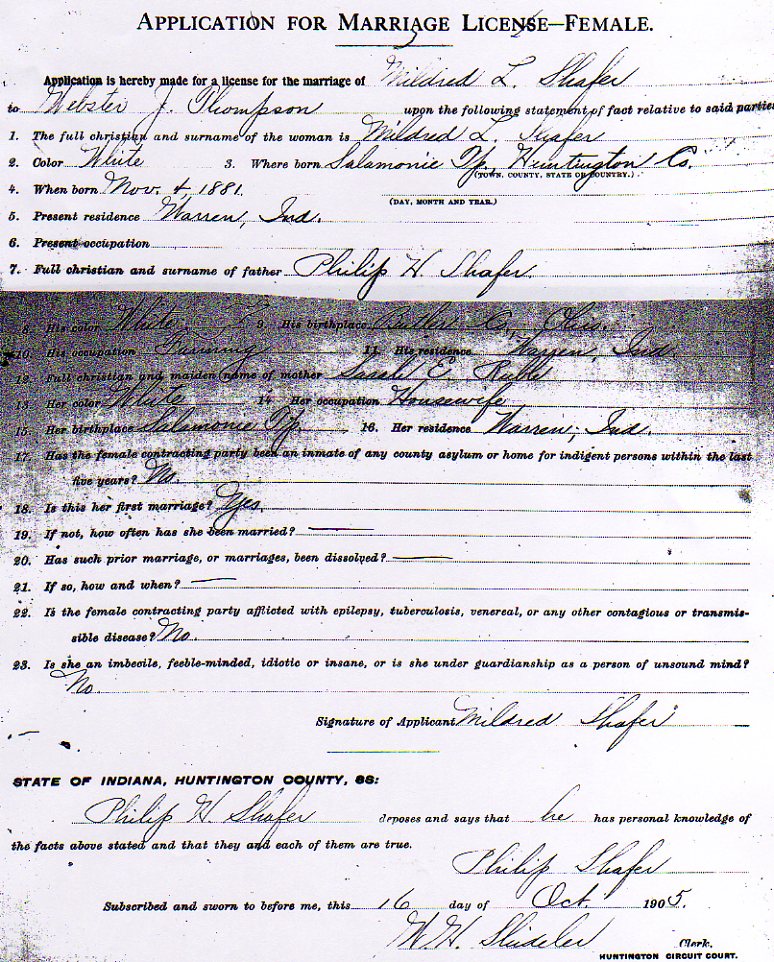 APPLICATION FOR MARRIAGE LICENSE—FEMALE.
Application is hereby made for a license for the marriage of Mildred L. Shafer
to Webster J. Thompson upon the following statement of fact relative to said parties
1. The full christian and surname of the woman is Mildred L. Shafer
2. Color White 3. Where born Salamonie Tp, Huntington Co.
(TOWN, COUNTY, STATE OR COUNTRY.)
4. When born Nov. 4, 1881.
(DAY, MONTH AND YEAR.)
5. Present residence Warren, Ind.
6. Present occupation
7. Full christian and surname of father Philip H. Shafer
8. His color White 9. His birthplace Butler C., Ohio.
10. His occupation Farming 11. His residence Warren, Ind.
12. Full christian and maiden name of mother Sarah E.
13. Her color White 14. Her occupation Housewife
15. Her birthplace Salamonie Tp. 16. Her residence Warren, Ind.
17. Has the female contracting party been an inmate of any county asylum or home for indigent persons within the last
five years? No.
18. Is this her first marriage? Yes.
19. If not, how often has she been married? —
20. Has such prior marriage, or marriages, been dissolved? —
21. If so, how and when? —
22. Is the female contracting party afflicted with epilepsy, tuberculosis, venereal, or any other contagious or transmis-
sible disease? No.
23. Is she an imbecile, feeble-minded, idiotic or insane, or is she under guardianship as a person of unsound mind?
No.
Signature of Applicant Mildred Shafer
STATE OF INDIANA, HUNTINGTON COUNTY, SS:
Philip H. Shafer deposes and says that he has personal knowledge of
the facts above stated and that they and each of them are true.
Philip Shafer
Subscribed and sworn to before me, this 16 day of Oct. 1905.
W. H. Clerk.
HUNTINGTON CIRCUIT COURT.